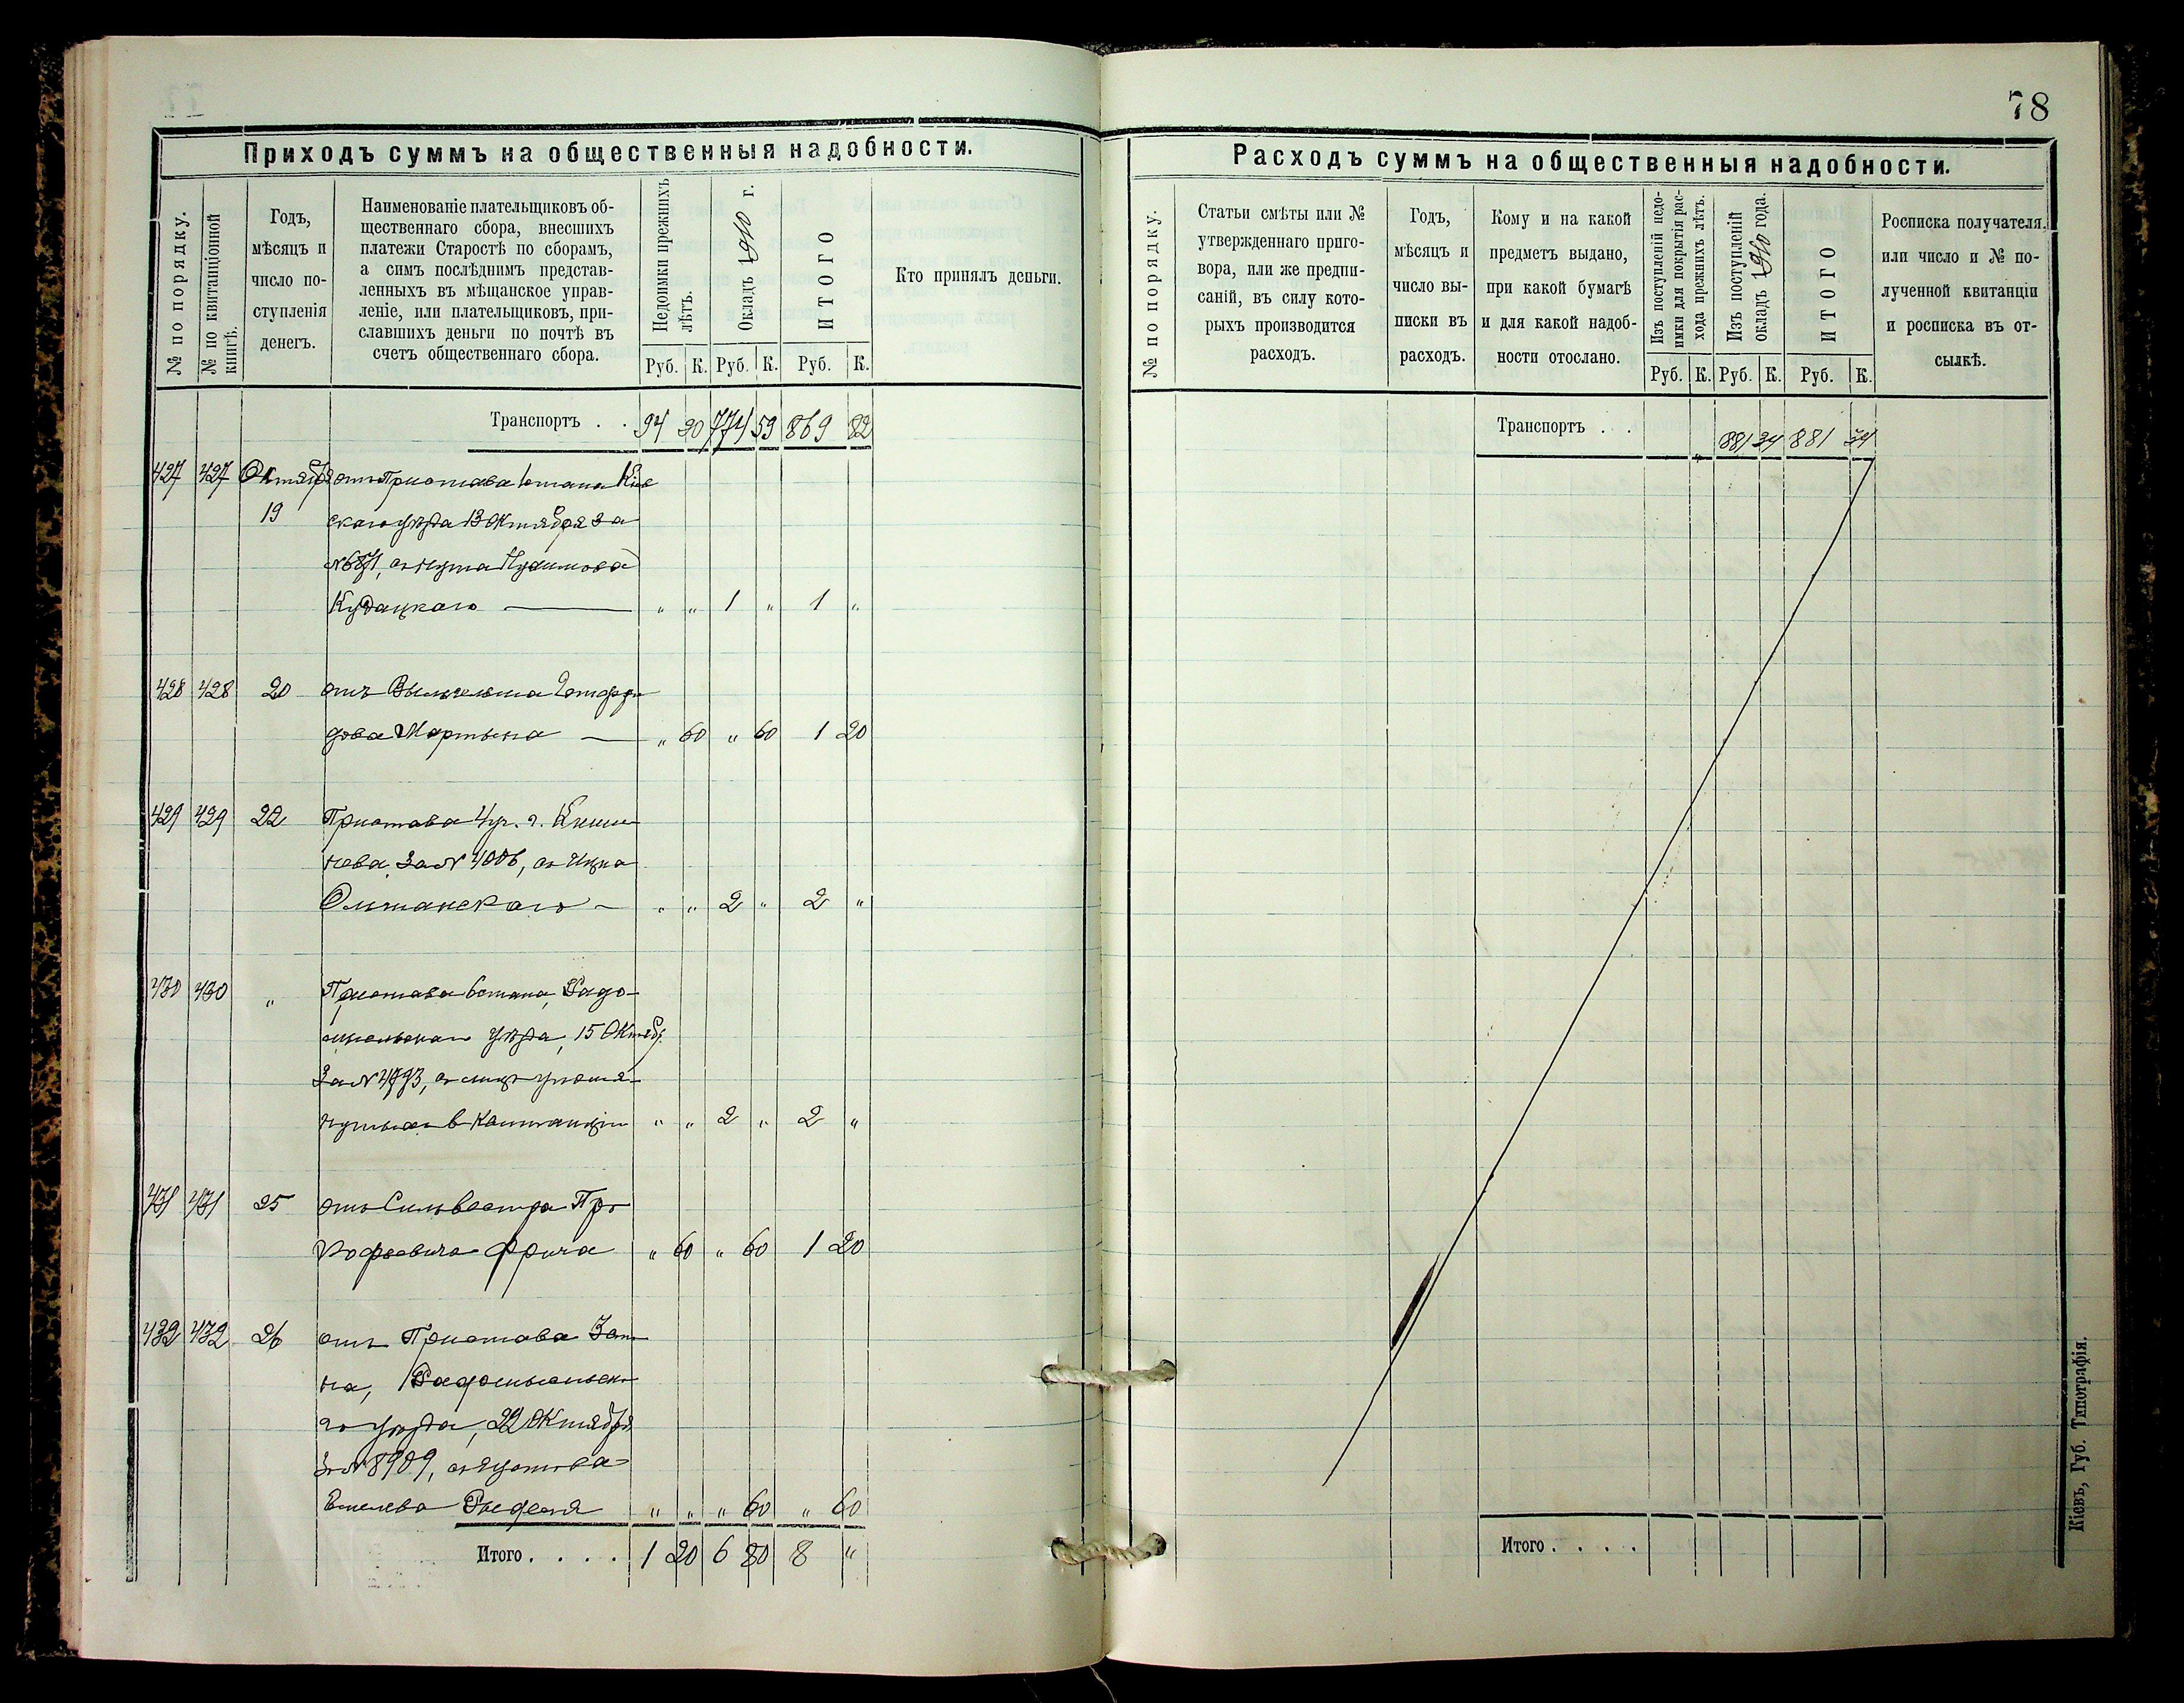 78
Приходъ суммъ на общественныя надобности.
№ по порядку.
№ по квитанціонной
книгѣ.
Годъ,
мѣсяцъ и
число по-
ступленія
денегъ.
Наименованіе плательщиковъ об-
щественнаго сбора, внесшихъ
платежи Старостѣ по сборамъ,
а симъ послѣднимъ представ-
ленныхъ въ мѣщанское управ-
леніе, или плательщиковъ, при-
славшихъ деньги по почтѣ въ
счетъ общественнаго сбора.
Недоимки прежнихъ
лѣтъ.
Окладъ 1910 г.
ИТОГО
Руб. К. Руб. К. Руб. К.
Кто принялъ деньги.
Транспортъ . . 94 774 59 869 82
427 427 Октября отъ Пристава 1 стана Кіев
19 скаго уѣзда 13 Октября за
№
Кудацкаго — „ „ 1 „ 1 „
428 428 20 отъ
Мартына — „ 60 „ 60 1 20
429 429 22 Пристава 4 уч. г. Киши
нева, за № 4006, съ Ицка
Ольшанскаго — „ „ 2 „ 2 „
430 430 „ Пристава 6 стана, Радо-
мысльскаго уѣзда, 15 Октябр.
За № 4793, съ лицъ упомя-
нутыхъ в квитанціи „ „ 2 „ 2 „
431 431 25 отъ Сильвестра Про
кофьевича Фрича „ 60 „ 60 1 20
432 432 26 отъ Пристава 3 ста
на, Радомысльска
го уѣзда, 22 Октября
За № 8909, съ
„ „ „ 60 „ 60
Итого . . . . 1 20 6 80 8 „
Расходъ суммъ на общественныя надобности.
№ по порядку.
Статьи смѣты или №
утвержденнаго приго-
вора, или же предпи-
саній, въ силу кото-
рыхъ производится
расходъ.
Годъ,
мѣсяцъ и
число вы-
писки въ
расходъ.
Кому и на какой
предметъ выдано,
при какой бумагѣ
и для какой надоб-
ности отослано.
Изъ поступленій недо-
имки для покрытія рас-
хода прежнихъ лѣтъ.
Изъ поступленій
окладъ 1910 года.
ИТОГО
Руб. К. Руб. К. Руб. К.
Росписка получателя,
или число и № по-
лученной квитанціи
и росписка въ от-
сылкѣ.
Транспортъ . . „ 881 34 881 34
Итого . . . .
Кіевъ, Губ. Типографія.